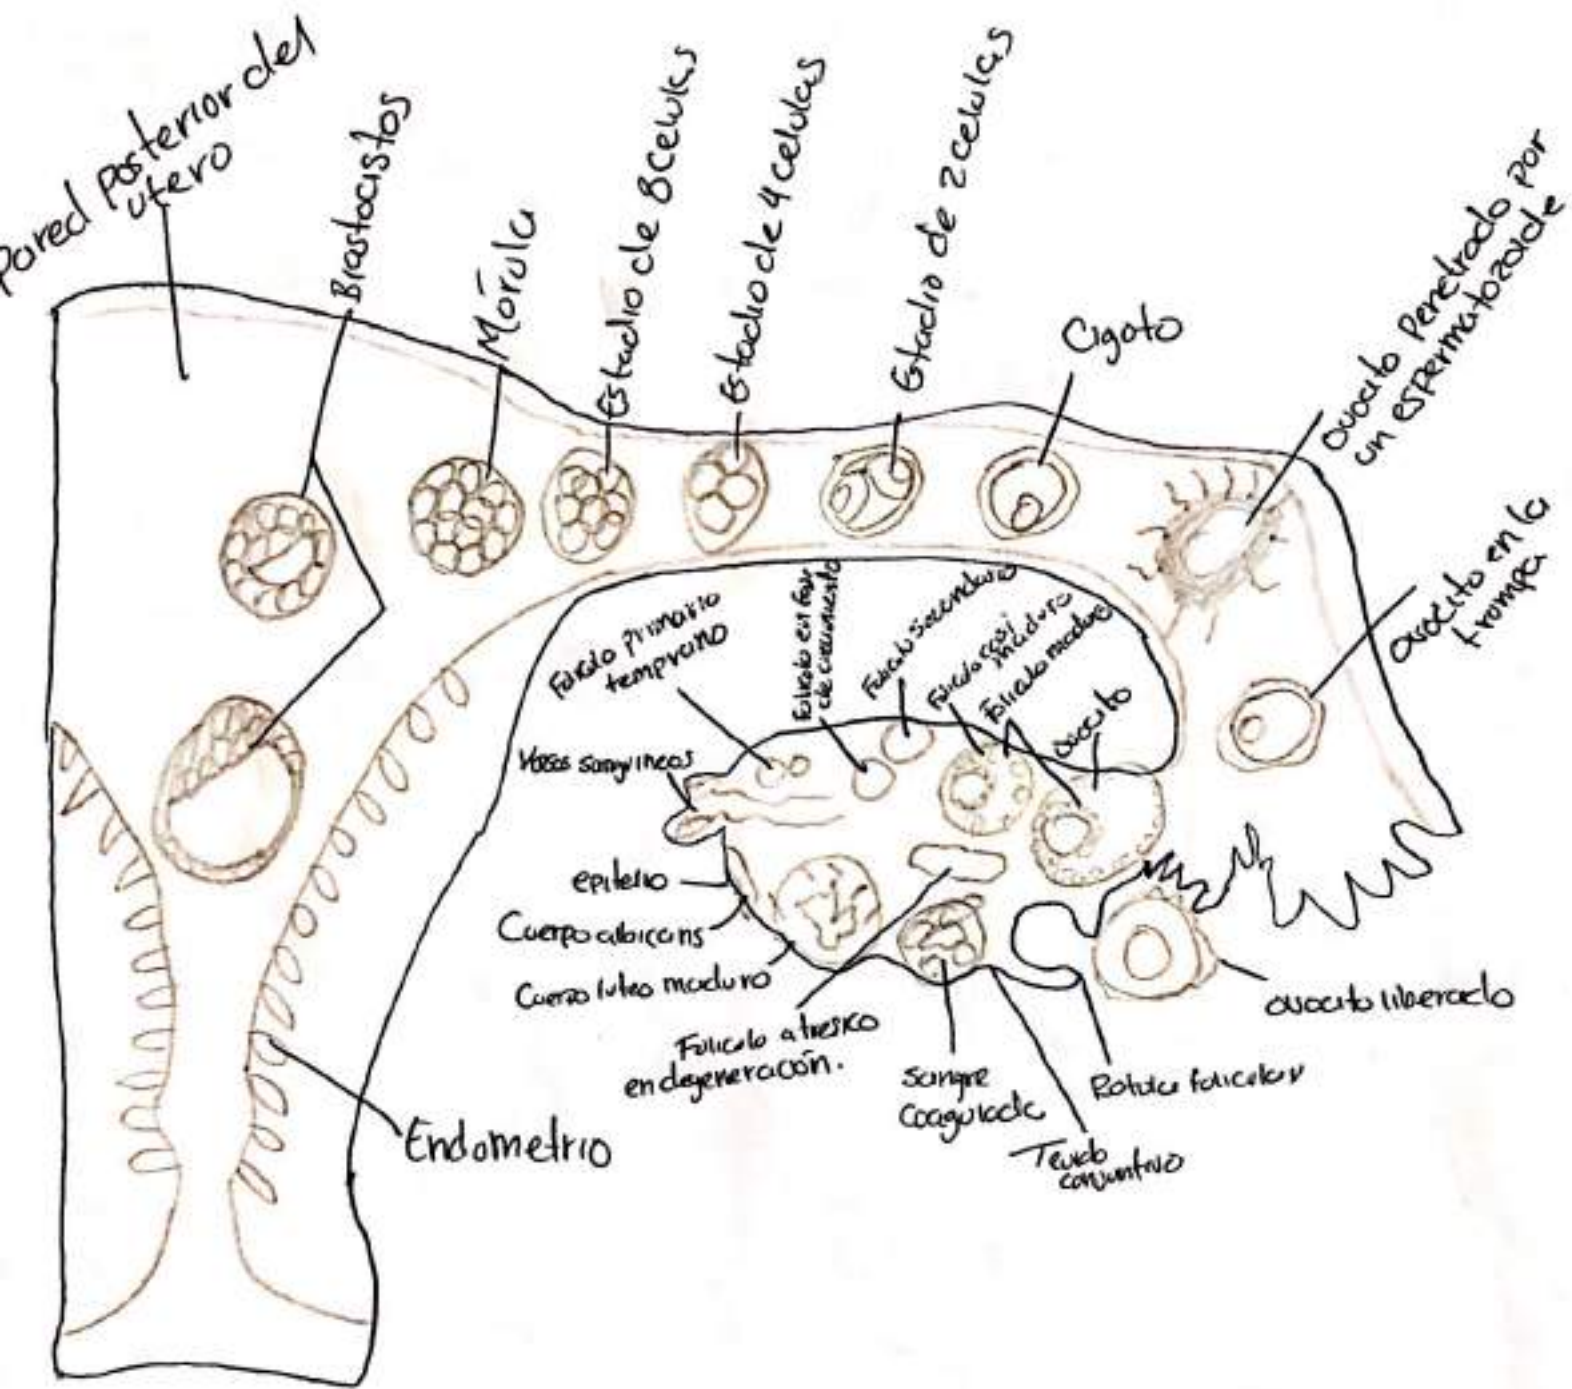 Pared posterior del
utero
Brastocistos
Mórula
Estadio de 8 celulas
Estadio de 4 celulas
Estadio de 2 celulas
Cigoto
ovocito penetrado por
un espermatozoide
ovocito en la
trompa
Foliculo primario
temprano
Foliculo en fase
de crecimiento
Foliculo secundario
Foliculo casi
maduro
Foliculo maduro
ovocito
Vasos sanguineos
epitelio
Cuerpo albicans
Cuerpo luteo maduro
Foliculo atresico
en degeneración.
Sangre
Coagulada
Tejido
conjuntivo
Rotula folicular
ovocito liberado
Endometrio